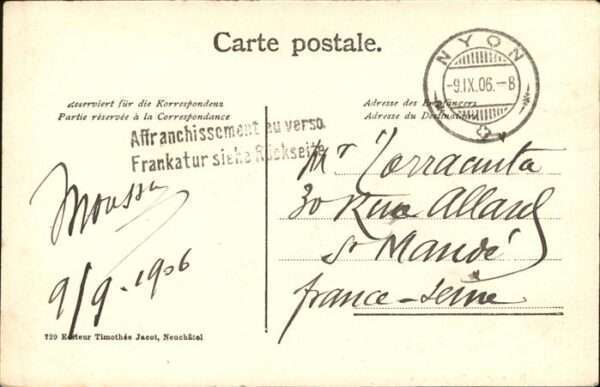 Carte postale.
NYON
-9.IX.06.-8
Reserviert für die Korrespondenz
Partie réservée à la Correspondance
Adresse des Empfängers
Adresse du Destinataire
Affranchissement au verso
Frankatur siehe Rückseite
Mr Torracinta
30 Rue Allard
St Mandé
France-Seine
9/9-1906
729 Editeur Timothée Jacot, Neuchâtel